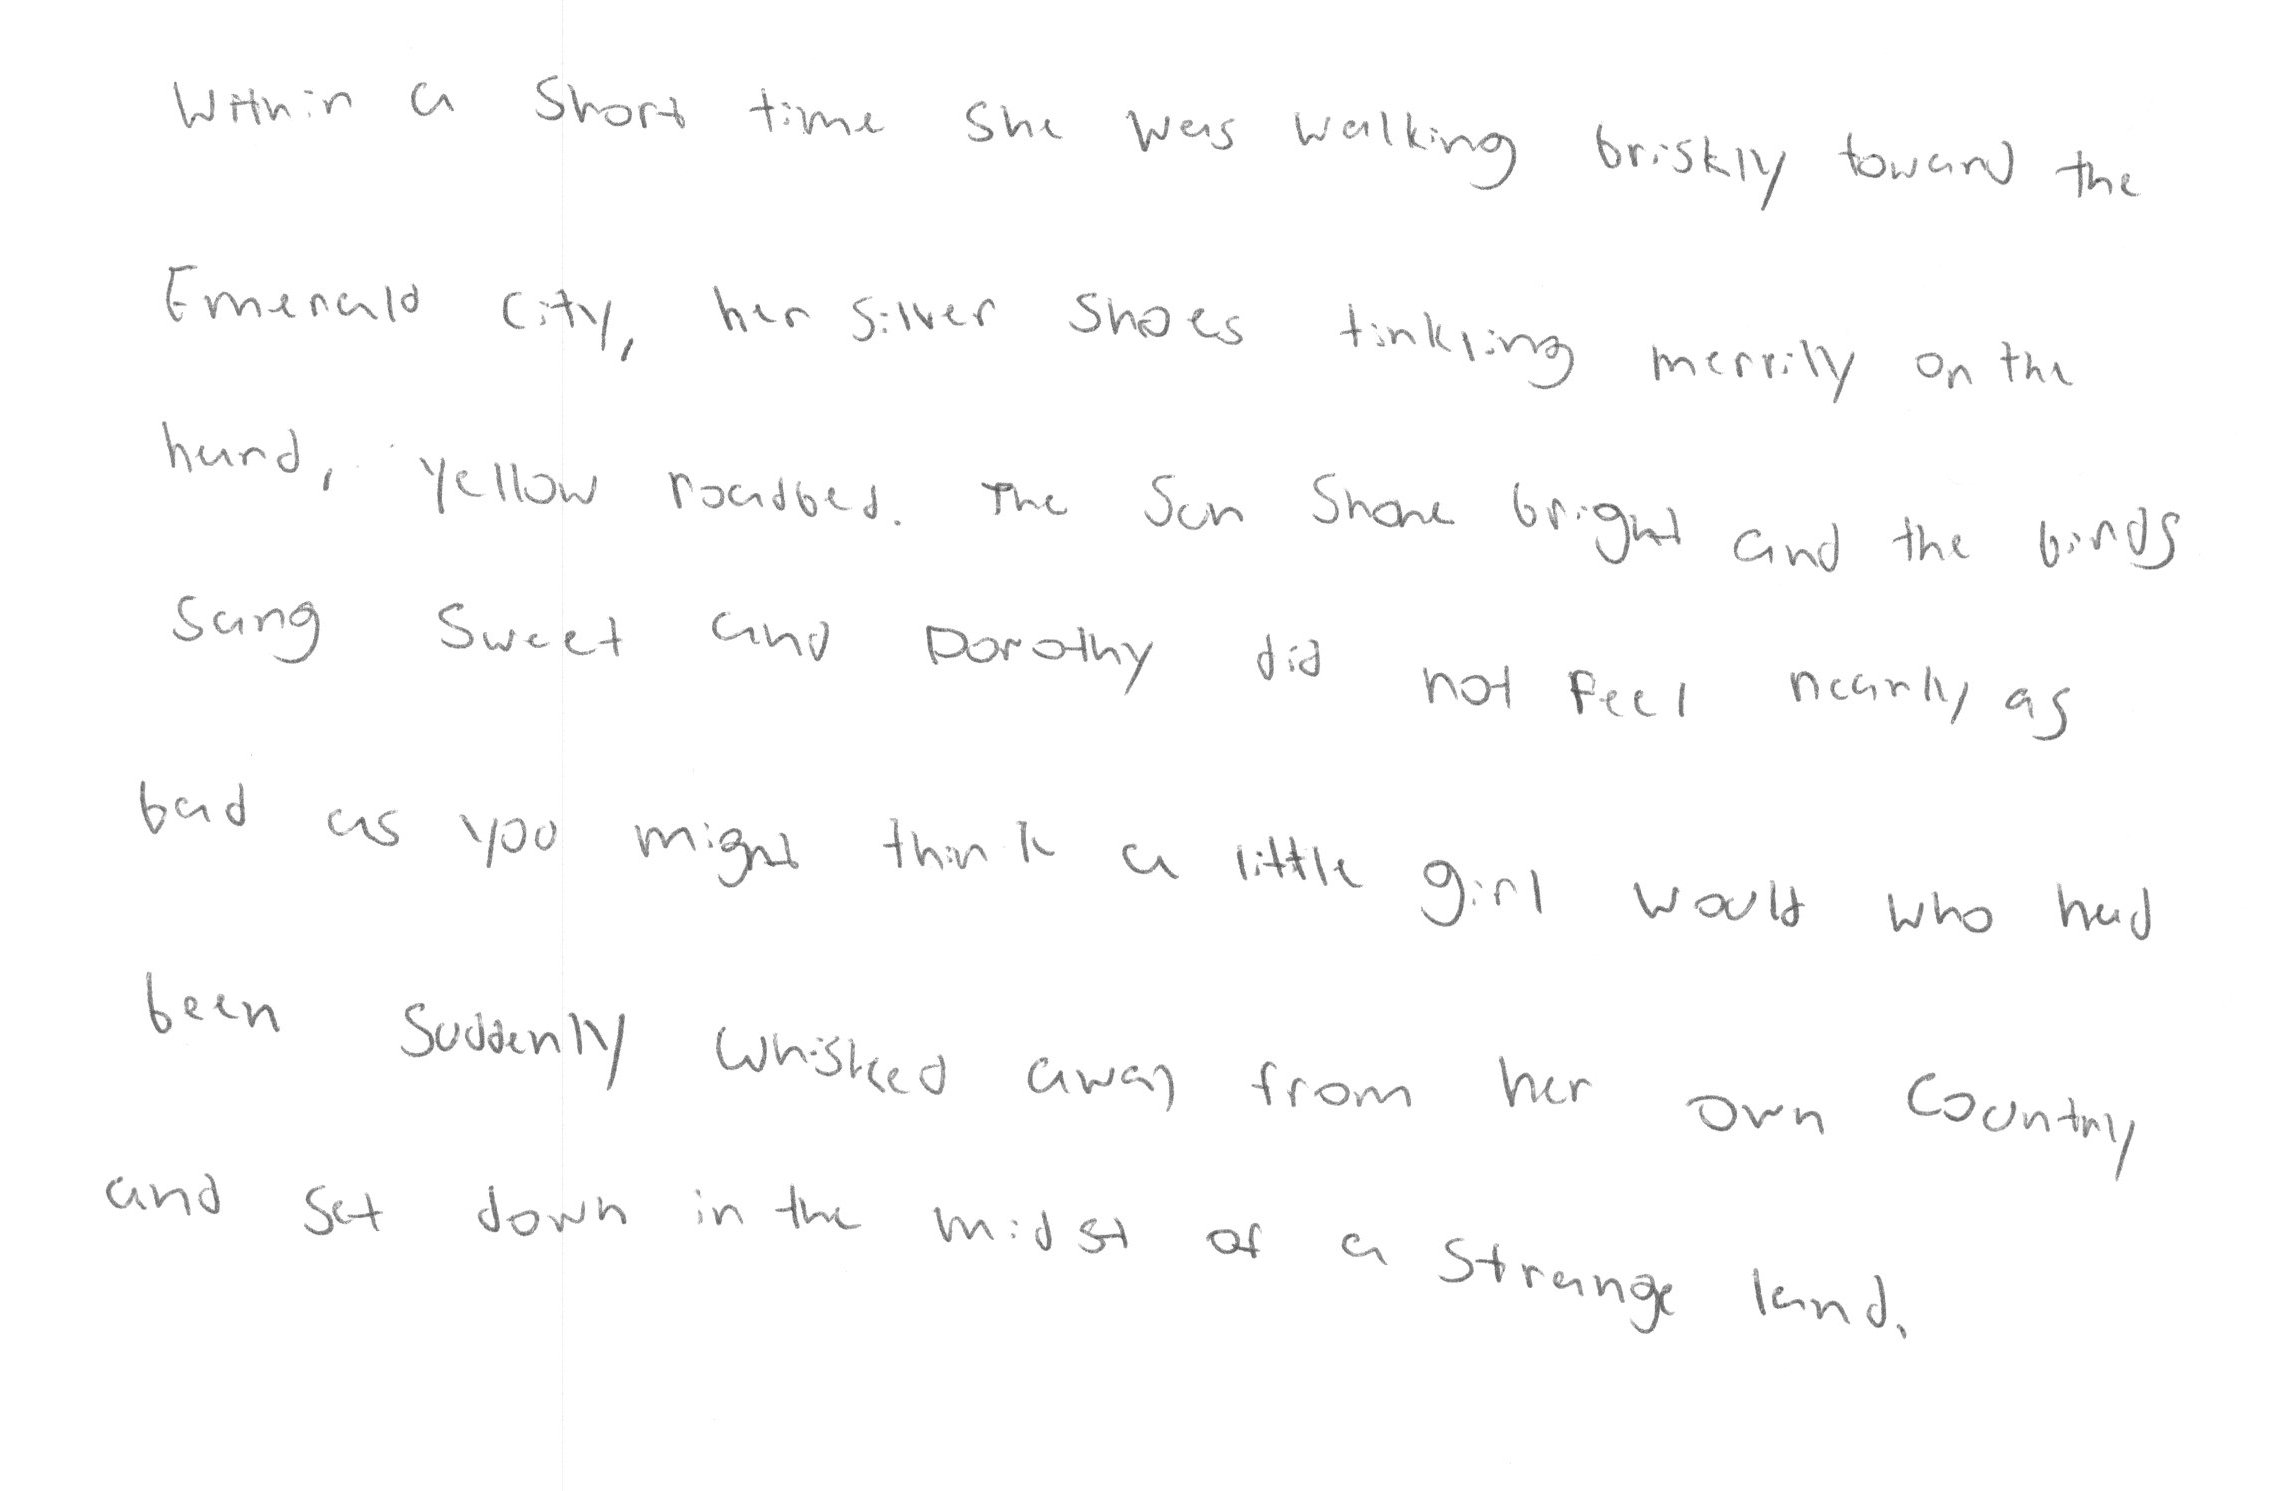 Within a short time she was walking briskly toward the
Emerald City, her silver shoes tinkling merrily on the
hard, yellow roadbed. The sun shone bright and the birds
sang sweet and Dorothy did not feel nearly as
bad as you might think a little girl would who had
been suddenly whisked away from her own country
and set down in the midst of a strange land.